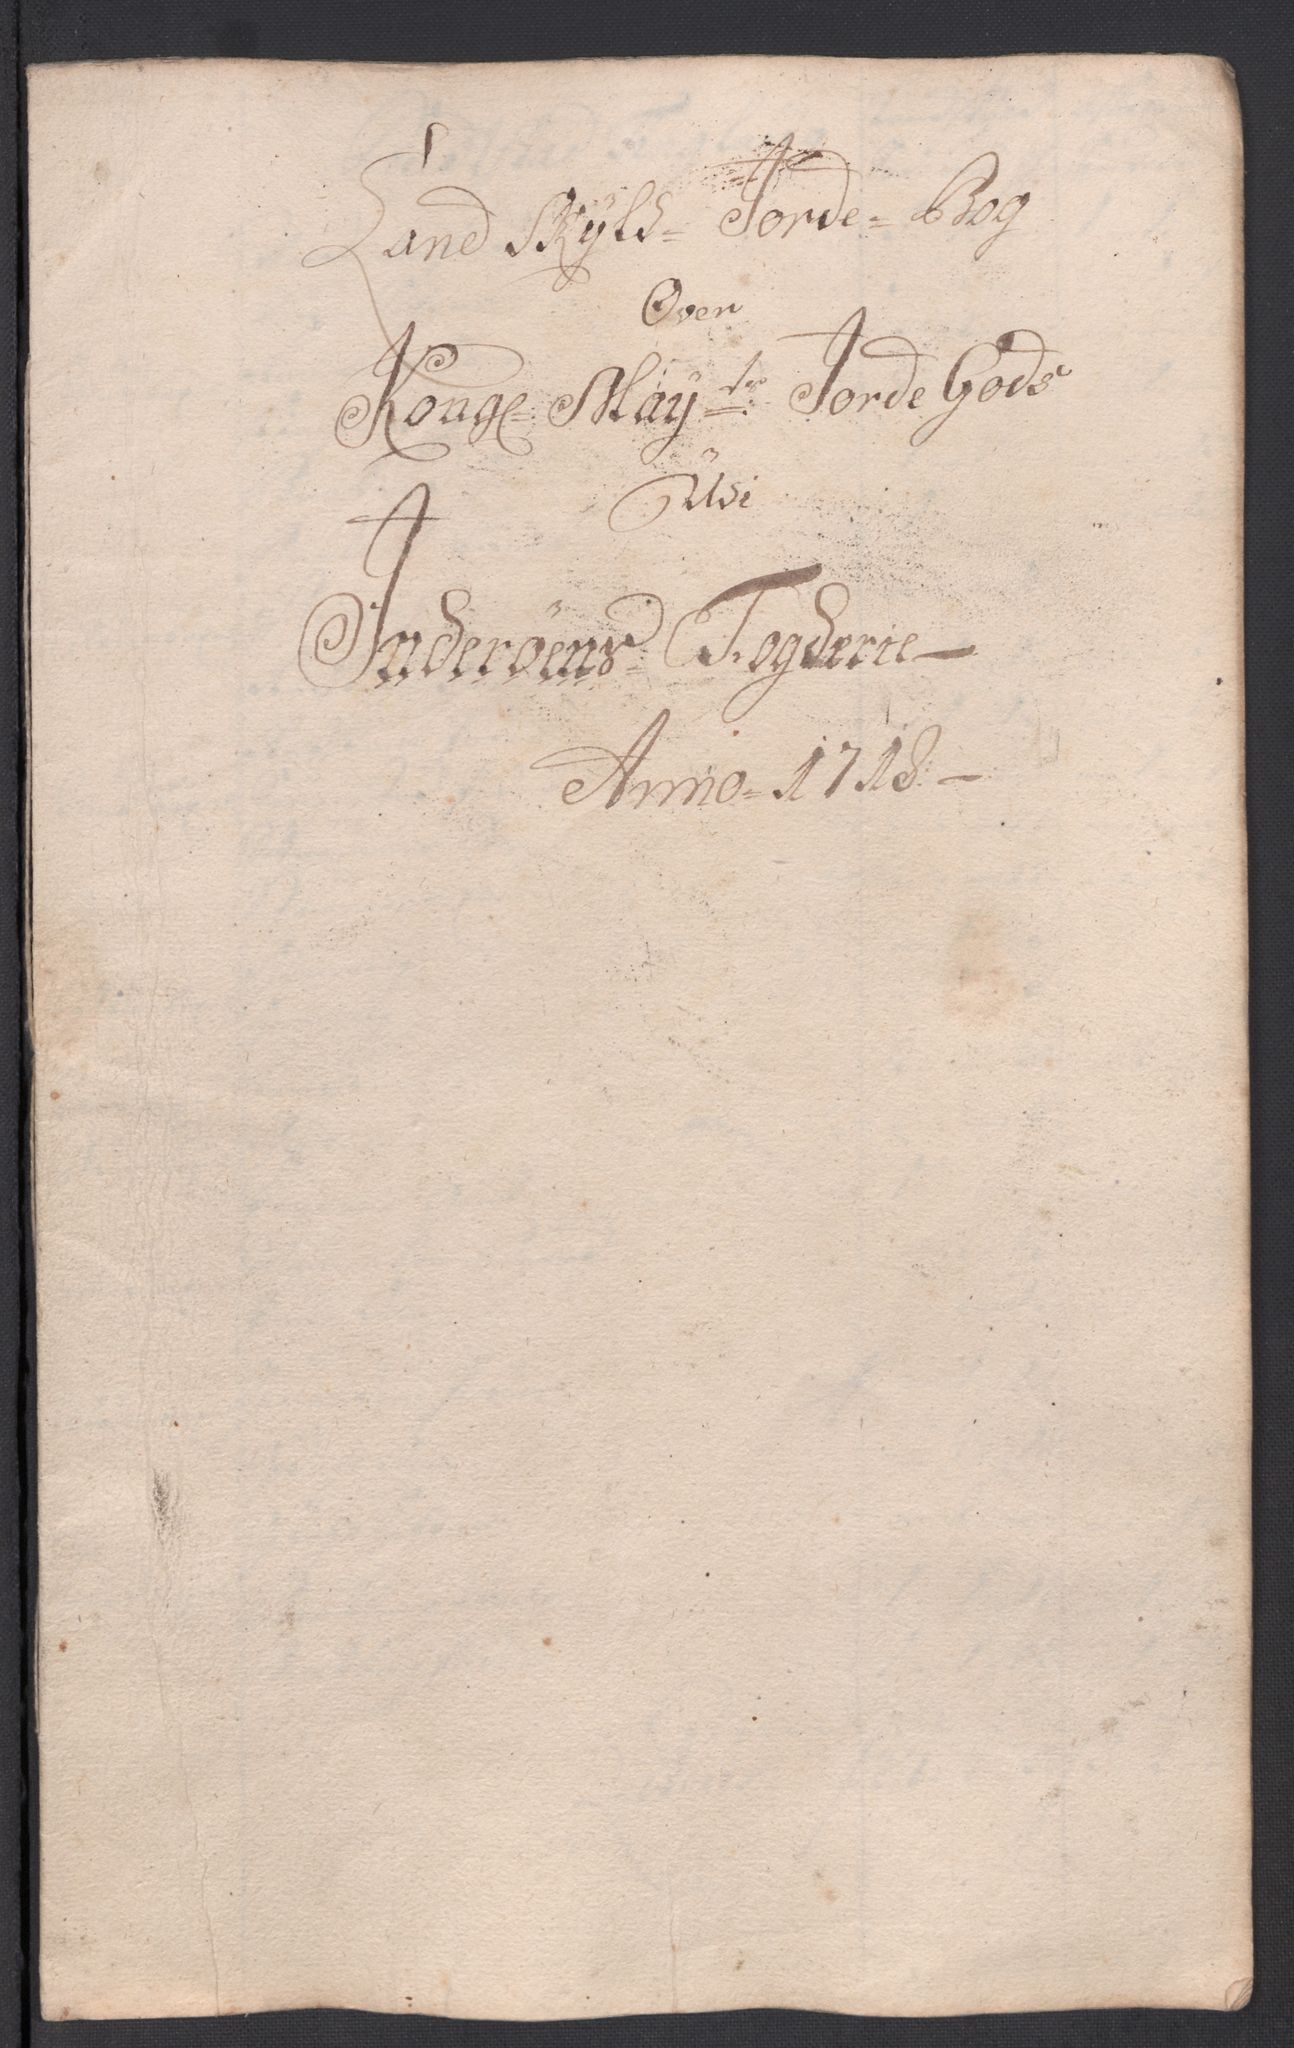 Land Skyld= Jorde= Bog
Over
Kongl= May:ts Jorde Gods
Udi
Inderøens Fogderie—
Anno= 1718—